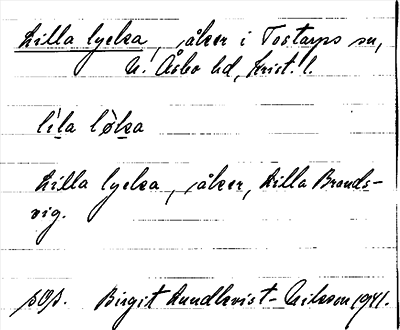 Lilla lycka, åker i Tostarps sn,
N. Åsbo hd, Krist. l.
lìla lø̀ka
Lilla lycka, åker, Lilla Brands-
vig.
Birgit Lundkvist-Nilsson 1941.